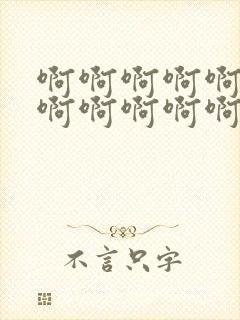 啊啊啊啊啊
啊啊啊啊啊
不言只字